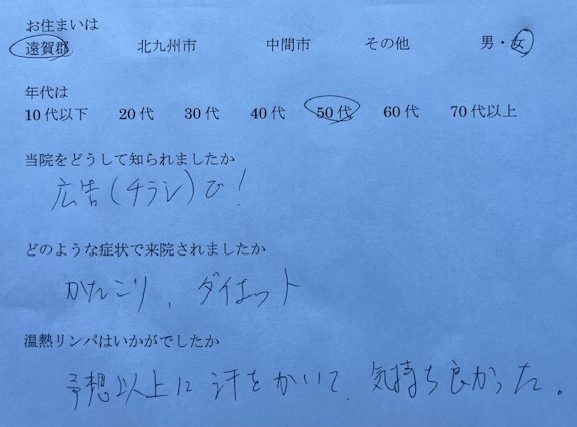 お住まいは
遠賀郡 北九州市 中間市 その他 男・女
年代は
10代以下 20代 30代 40代 50代 60代 70代以上
当院をどうして知られましたか
広告(チラシ)で!
どのような症状で来院されましたか
かたこり、ダイエット
温熱リンパはいかがでしたか
予想以上に汗をかいて、気持ち良かった。